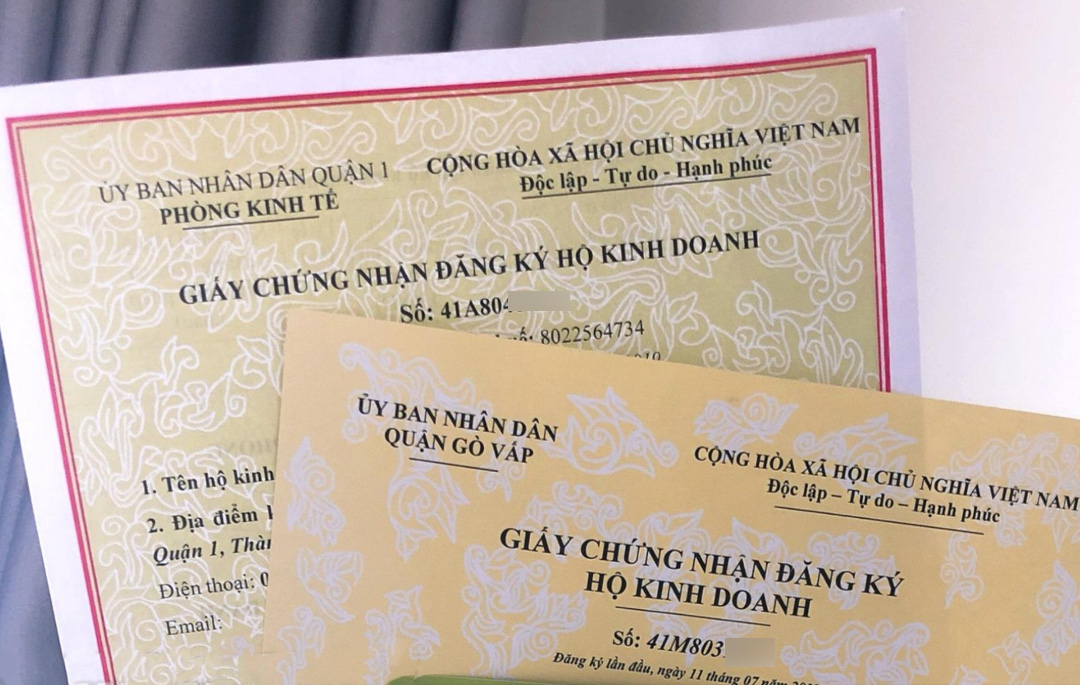 ỦY BAN NHÂN DÂN QUẬN 1
PHÒNG KINH TẾ
CỘNG HÒA XÃ HỘI CHỦ NGHĨA VIỆT NAM
Độc lập - Tự do - Hạnh phúc
GIẤY CHỨNG NHẬN ĐĂNG KÝ HỘ KINH DOANH
Số: 41A804
8022564734
1. Tên hộ kinh
2. Địa điểm
Quận 1,
Điện thoại: 0
Email:
ỦY BAN NHÂN DÂN
QUẬN GÒ VẤP
CỘNG HÒA XÃ HỘI CHỦ NGHĨA VIỆT NAM
Độc lập – Tự do – Hạnh phúc
GIẤY CHỨNG NHẬN ĐĂNG KÝ
HỘ KINH DOANH
Số: 41M803
Đăng ký lần đầu, ngày 11 tháng 07 năm